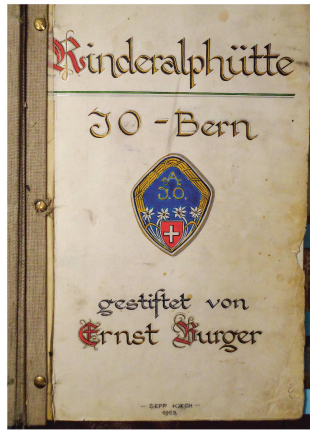 Rinderalphütte
JO - Bern
A.
J.O.
gestiftet von
Ernst Burger
- SEPP KÄCH -